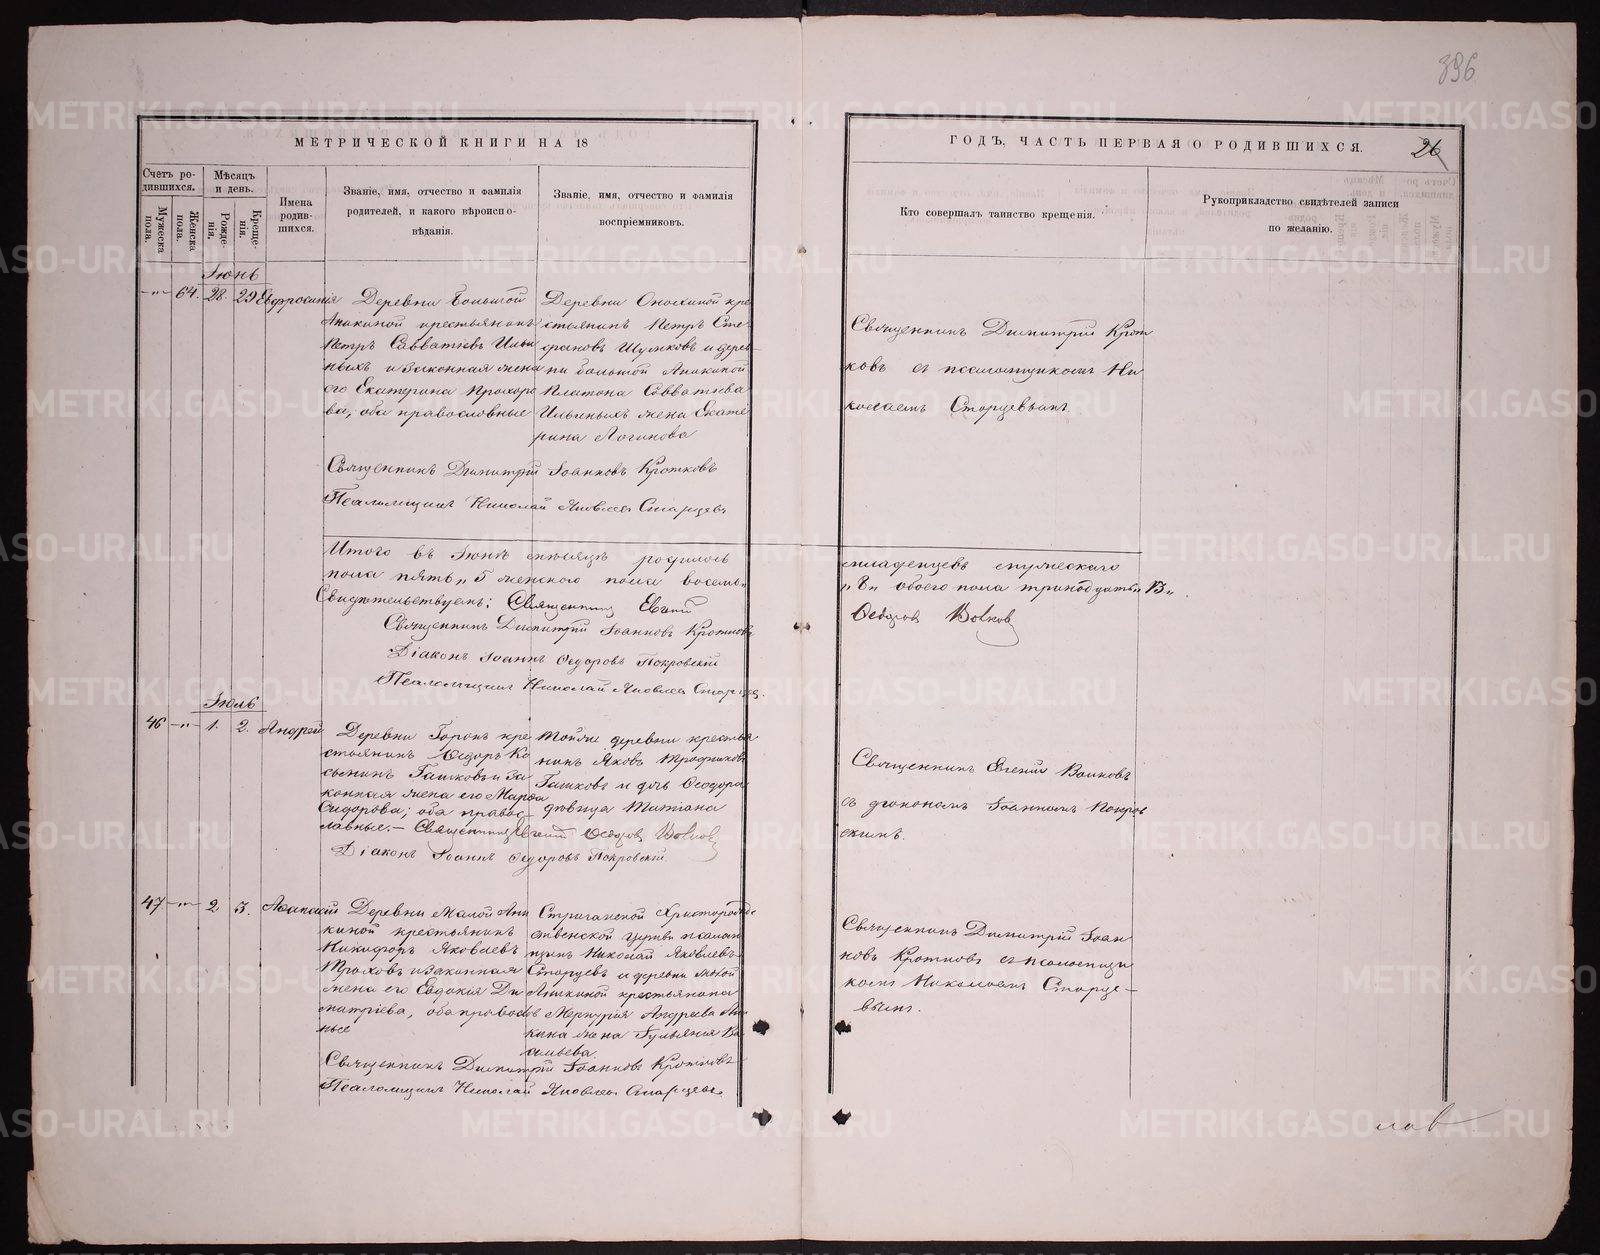 396
МЕТРИЧЕСКОЙ КНИГИ НА 18
ГОДЪ, ЧАСТЬ ПЕРВАЯ О РОДИВШИХСЯ.
26
Счетъ ро-
дившихся.
Мужеска пола.
Женска пола.
Мѣсяцъ
и день.
Рожде-
нія.
Креще-
нія.
Имена
родив-
шихся.
Званіе, имя, отчество и фамилія
родителей, и какого вѣроиспо-
вѣданія.
Званіе, имя, отчество и фамилія
воспріемниковъ.
Кто совершалъ таинство крещенія.
Рукоприкладство свидѣтелей записи
по желанію.
Іюнь
-"- 64. 28. 29 Евфросинія
Деревни Большой
Аникиной крестьянинъ
Петръ Савватіевъ Ильи
ныхъ и законная жена
его Екатерина Прохоро
ва; оба православные
Деревни Оносиной кре
стьянинъ Петръ Сте
фановъ Шумковъ и дерев
ни большой Аникиной
Платона Савватіева
Ильиныхъ жена Екате
рина Логинова
Священникъ Димитрій Крот
ковъ съ псаломщикомъ Ни
колаемъ Старцевымъ.
Священникъ Димитрій Іоанновъ Кротковъ
Псаломщикъ Николай Яковлевъ Старцевъ
Итого въ Іюнѣ мѣсяцѣ родилось
младенцевъ мужескаго
пола пять „5 женского пола восемь
„8„ обоего пола тринадцать„ 13„
Свидѣтельствуемъ: Священникъ Евгеній
Ѳедоровъ Волковъ
Священникъ Димитрій Іоанновъ Кротковъ
Діаконъ Іоаннъ Ѳедоровъ Покровскій
Псаломщикъ Николай Яковлевъ Старцевъ.
Іюль
46 -"- 1. 2. Андрей
Деревни Горокъ кре
стьянинъ Ѳедоръ Ко
сьминъ Гашковъ и за
конная жена его Марѳа
Сидорова; оба правос-
лавные. —
Тойже деревни крестья
нинъ Яковъ Трофимовъ
Гашковъ и дочь Ѳеодора
дѣвица Татіана
Священникъ Евгеній Волковъ
съ діакономъ Іоанномъ Покров
скимъ.
Священникъ Евгеній Ѳедоровъ Волковъ
Діаконъ Іоаннъ Ѳедоровъ Покровскій
47 -"- 2 3. Аѳанасій
Деревни Малой Ани
киной крестьянинъ
Никифоръ Яковлевъ
Троховъ и законная
жена его Евдокія Ди
митріева, оба православ
ные
Стриганской Христорожде
ственской церкви псалом
щикъ Николай Яковлевъ
Старцевъ и деревни Малой
Аникиной крестьянина
Меркурія Андреева Ани
кина жена Іуліанія Ва
сильева.
Священникъ Димитрій Іоан
новъ Кротковъ съ псаломщи
комъ Николаемъ Старце—
вымъ.
Священникъ Димитрій Іоанновъ Кротковъ
Псаломщикъ Николай Яковлевъ Старцевъ
METRIKI.GASO-URAL.RU